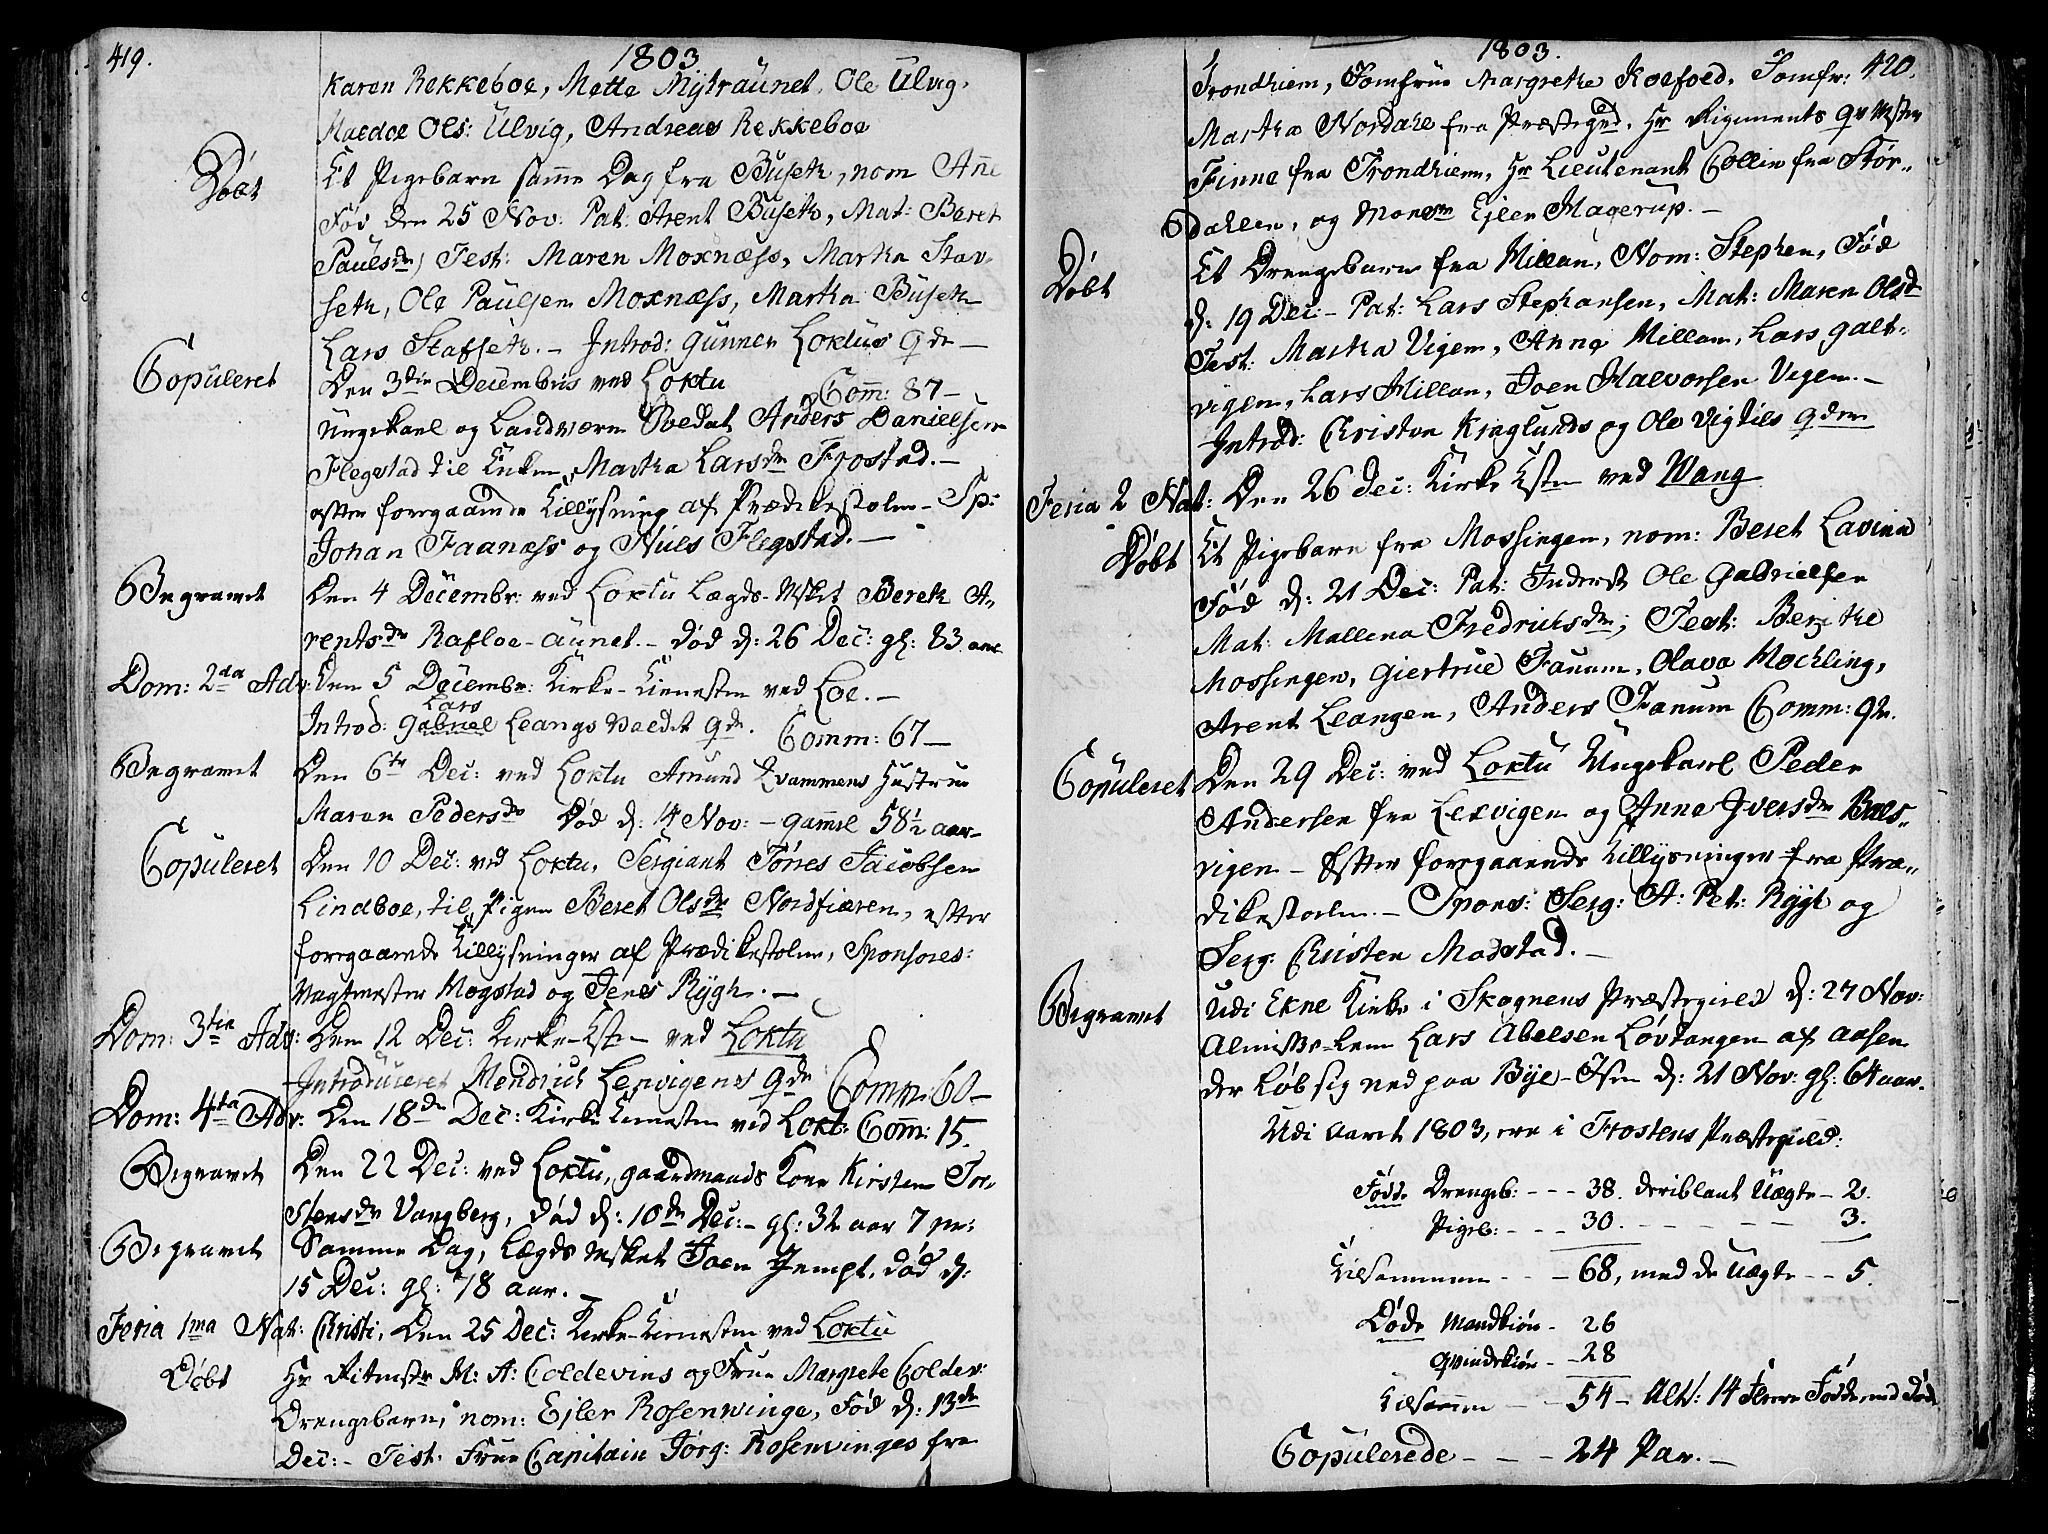 419.
1803
Karen Rekkeboe, Mette Nÿtraünet, Ole Ülvig,
Ols: Ülvig, Andreas Rekkeboe
Døbt
Et Pigebarn samme Dag fra Büseth, nom Ane
Fød den 25 Nov: Pat: Arent Büseth, Mat: Beret
Paülsdr, Test: Maren Moxnæss, Martha Stav-
seth, Ole Paülsen Moxnæss, Martha Büseth
Lars Stafseth. – Introd: Gunner Loktüs Qde –
Copüleret
Den 3die Decembris ved Loktu
Com̄: 87 –
Ungekarl og Landværn Soldat Anders Danielsen
Flegstad til Enken Martha Larsdr Frostad. –
efter foregaaende Tillÿsning af Prædikestolen – Sp:
Johan Faanæss og Niels Flegstad. –
Begravet
Den 4 Decembr: ved Loktu Lægds-Msket Bereth A-
rentsdr Rafloe-aünet. – død d: 26 Dec: gl: 83 aar
Dom: 2da Adv:
Den 5 Decembr: Kirke-Tienesten ved Loe. –
Lars
Introd: Gabriel Leangs Qde.
Comm: 67 –
Begravet
Den 6te Dec: ved Loktu Amund Qvammens Hustrue
Maren Pedersdr Død d: 14 Nov: – gammel 58½ aar
Copüleret
Den 10 Dec: ved Loktu, Sergiant Tørres Jacobsen
Lindboe, til Pigen Beret Olsdr Nordfiæren, efter
foregaaende Tillÿsninger af Prædikestolen, Sponsores:
Vagtmester Mogstad og Jens Rÿgh. –
Dom: 3tie Adv:
Den 12 Dec: Kirke-Tsten ved Loktu
Introduceret Lexvigens Qde
Comm: 60 –
Dom: 4ta Adv:
Den 18de Dec: Kirke Tienesten ved Lokt: Com̄: 15.
Begravet
Den 22 Dec: ved Loktu, gaardmands Kone Kirsten Tor-
stensdr Vangberg, død d: 10de Dec: – gl: 32 aar 7
Begravet
Samme Dag, Lægds Msket Joen Jempt, død d:
15 Dec: gl: 78 aar. –
Feria 1ma Nat: Christi, Den 25 Dec: Kirke-Tienesten ved Loktu
Døbt
Hr Ritmstr M: A: Coldevins og Frue Margrete Coldev:
Drengebarn, nom: Ejler Rosenvinge, Fød d: 13de
Dec: – Test: Frue Capitain Jørg: Rosenvinges fra
1803.
420.
Trondhiem, Jomfrue Margrethe Koefoed, Jomfr:
Martha Nordahl fra Præstegrd, Hr Rigiments Qv Mster
Finne fra Trondhiem, Hr Lieutenant Collin fra Stør-
dahlen, og Monsr Ejler Hagerup. –
Døbt
Et Drengebarn fra Millan, Nom: Stephen, Fød
d: 19 Dec: – Pat: Lars Stephansen, Mat: Maren Olsdr
Test: Martha Vigen, Anne Millan, Lars Galt-
vigen, Lars Millan, Joen Halvorsen Vigen. –
Introd: Christen Kinglunds og Ole Vigtils Qder
Feria 2 Nat: Den 26 Dec: Kirke Tsten ved Wang
Døbt
Et Pigebarn fra Mossingen, nom: Beret Lavina
Fød d: 21 Dec: Pat: Inderst Ole Gabrielsen
Mat: Mallena Fredrichsdr, Test: Berithe
Mossingen, Giertrue Fanum, Olava Mochling,
Arent Leangen, Anders Fanum Comm: 92.
Copüleret
Den 29 Dec: ved Loktu Ungekarl Peder
Andersen fra Lexvigen og Anne Iversdr Bals-
vigen – Efter foregaaende Tillÿsninger fra Præ-
dikestolen. – Spons: Serg: A: Pet: Rÿgh og
Serg: Christen Madstad. –
Begravet
Udi Ekne Kirke i Skognens Præstegield d: 27 Nov:
Almisse-Lem Lars Abelsen Løvtangen af Aasen
der Løb sig ned paa Bÿe-Isen d: 21 Nov: gl: 64 aar.
Udi aaret 1803, ere i Frostens Præstegield:
Fødde Drengeb: – – – 38. deriblant Uægte – 2.
Pigeb: – – – 30. – – – – – 3.
Tilsammen – – – 68, med de Uægte – – 5.
Døde Mandkiøn – 26
Qvindekiøn – – 28
Tilsammen – – 54 – Alts: 14 Flere Fødde end Død
Copülerede – – – 24 Par. –